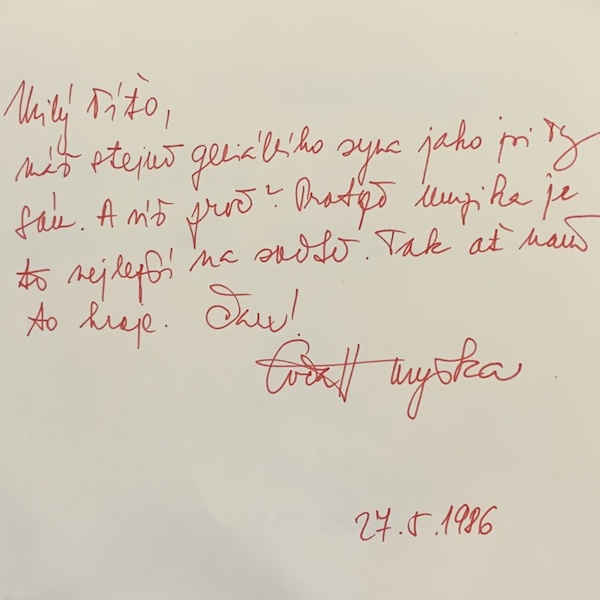 Milý Tíťo,
máš stejně geniálního syna jako jsi Ty
sám. A víš proč? Protože muzika je
to nejlepší na světě. Tak ať nám
to hraje. Jan!
myška
27.5.1986